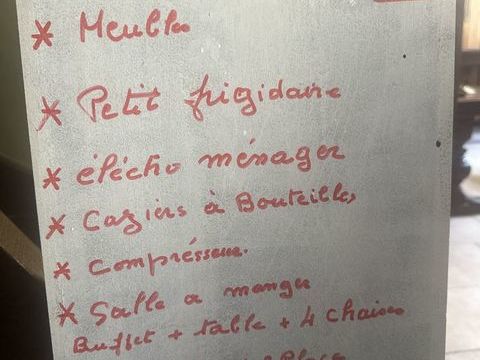 * Meubles
* Petit frigidaire
* éléctro ménager
* Caziers à Bouteilles
* Comprésseur.
* Salle a manger
Buffet + table + 4 chaises